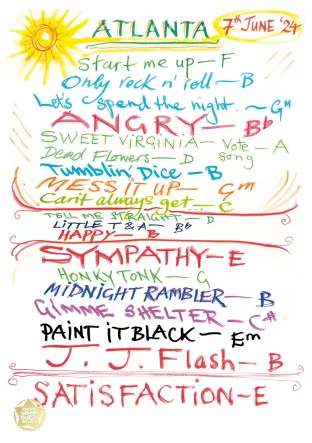 ATLANTA 7th JUNE '24
Start me up - F
Only rock n' roll - B
Let's spend the night.. ~ Gm
ANGRY - Bb
SWEET VIRGINIA - Vote song - A
Dead Flowers - D
Tumblin' Dice - B
MESS IT UP - Cm
Can't always get... C
TELL ME STRAIGHT - D
LITTLE T & A - Bb
HAPPY - B
SYMPATHY - E
HONKY TONK - G
MIDNIGHT RAMBLER - B
GIMME SHELTER - C#
PAINT iT BLACK - Em
J. J. Flash - B
SATISFACTION - E